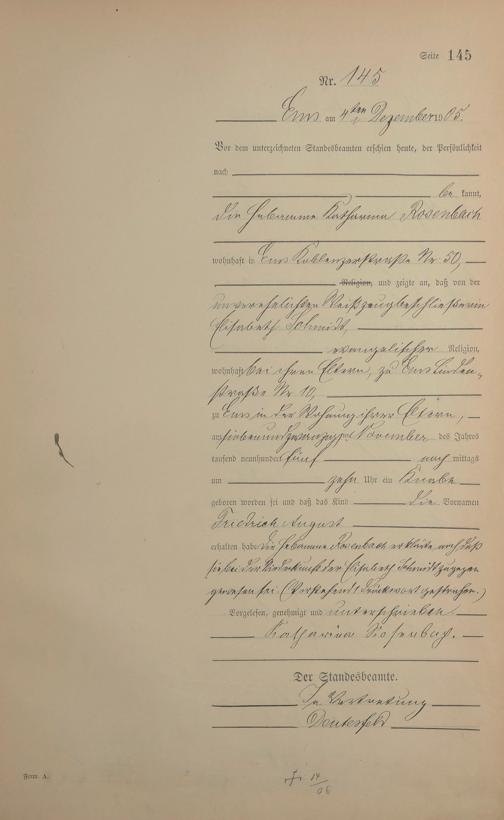 Seite 145
Nr. 145
Ems am 4ten Dezember 1905.
Vor dem unterzeichneten Standesbeamten erschien heute, der Persönlichkeit
nach
be kannt,
die Hebamme Katharina Rosenbach
wohnhaft in Ems Koblenzerstraße Nr 50,
Religion, und zeigte an, daß von der
unverehelichten Weißzeugbeschließerin
Elisabeth Schmidt,
evangelischer Religion,
wohnhaft bei ihren Eltern, zu Ems Linden-
straße Nr 10,
zu Ems in der Wohnung ihrer Eltern,
am siebenundzwanzigsten November des Jahres
tausend neunhundert fünf nach mittags
um zehn Uhr ein Knabe
geboren worden sei und daß das Kind die Vornamen
Friedrich August
erhalten habe. Die Hebamme Rosenbach erklärte noch daß
sie bei der Niederkunft der Elisabeth Schmidt zugegen
gewesen sei. (Vorstehend 1 Druckwort gestrichen.)
Vorgelesen, genehmigt und unterschrieben
Katharina Rosenbach.
Der Standesbeamte.
In Vertretung
Form. A.
14
06